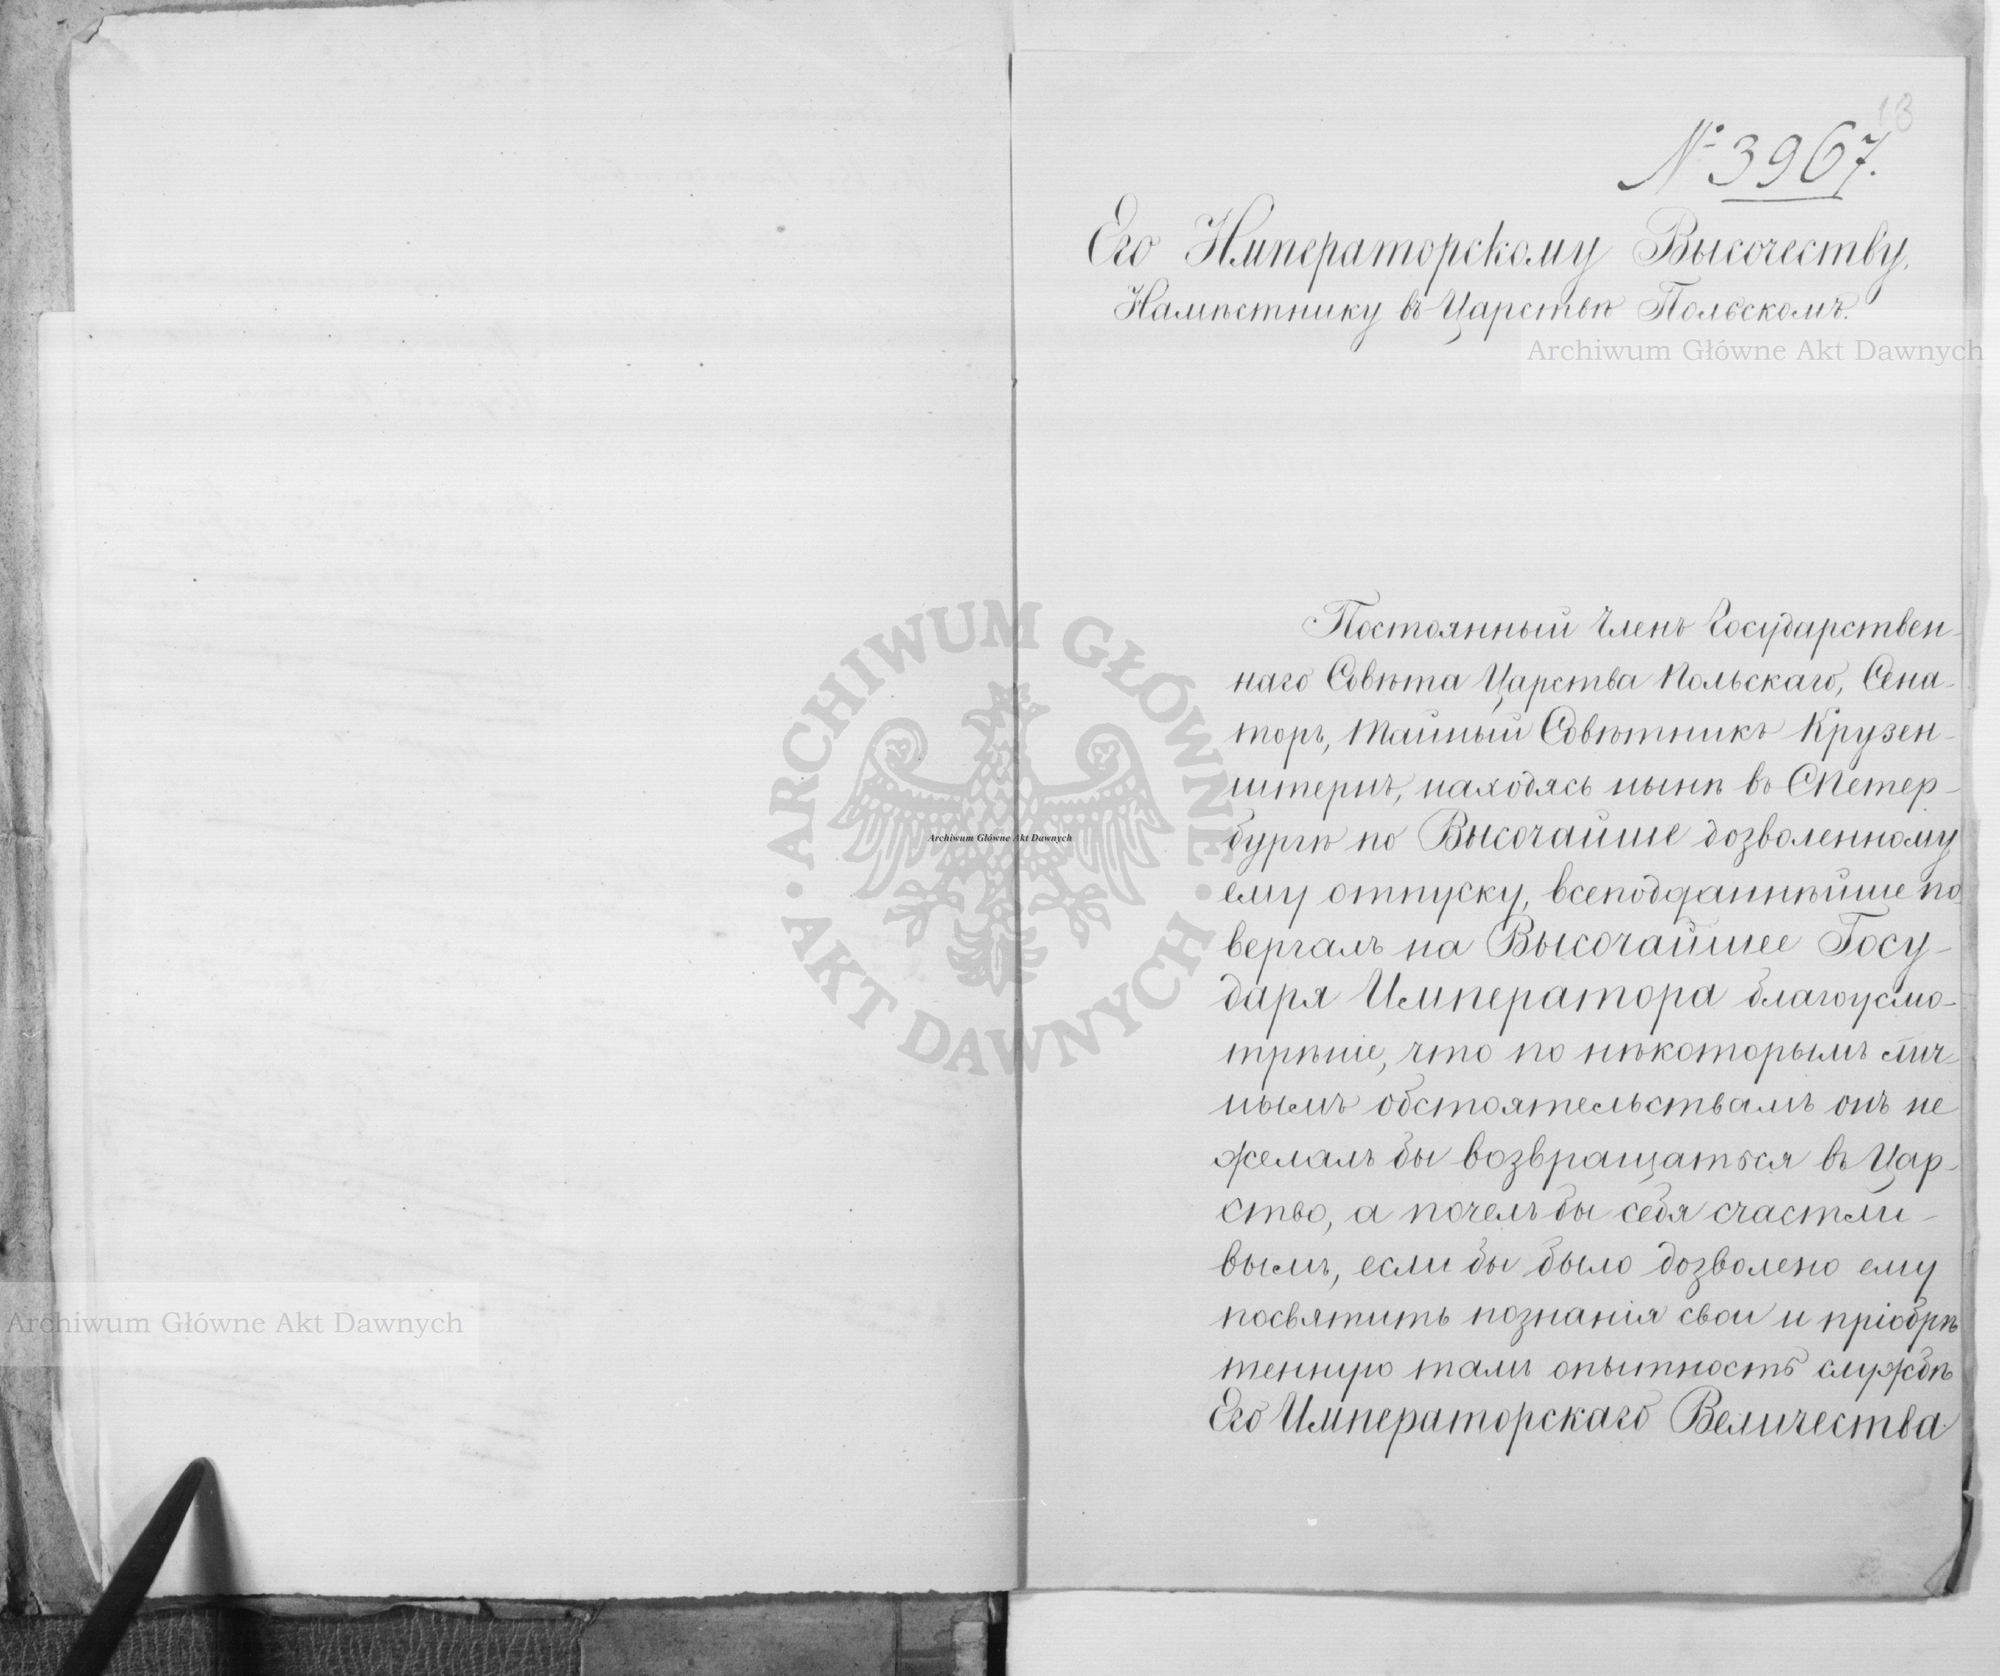 13
№ 3967.
Его Императорскому Высочеству,
Намѣстнику въ Царствѣ Польскомъ.
Archiwum Główne Akt Dawnych
Постоянный Членъ Государствен-
наго Совѣта Царства Польскаго, Сена-
торъ, Тайный Совѣтникъ Крузен-
штернъ, находясь нынѣ въ СПетер-
бургѣ по Высочайше дозволенному
ему отпуску, всеподданнѣйше по-
вергалъ на Высочайшее Госу-
даря Императора благоусмо-
трѣніе, что по нѣкоторымъ лич-
нымъ обстоятельствамъ онъ не
желалъ бы возвращаться въ Цар-
ство, а почелъ бы себя счастли-
вымъ, если бы было дозволено ему
посвятить познанія свои и пріобрѣ
тенную тамъ опытность службѣ
Его Императорскаго Величества
ARCHIWUM GŁÓWNE · AKT DAWNYCH ·
Archiwum Główne Akt Dawnych
Archiwum Główne Akt Dawnych